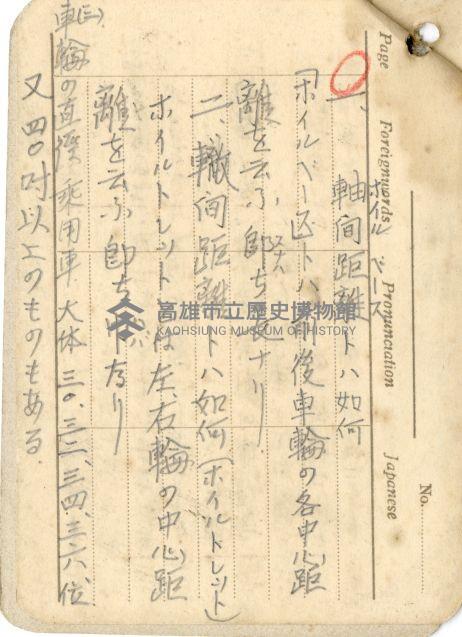 No.
Page Foreignwords Pronunciation Japanese
ホイル ベース
一、軸间距離トハ如何
「ホイルベース」トハ前後車輪の各中心距
離を云ふ即ち
二、轍间距離トハ如何(ホイルトレット)
ホイルトレットは左、右輪の中心距
離を云ふ即ち なり
(三)車輪の直徑 乘用車 大体 三〇、三二、三四、三六位、
又四〇吋以上のものもある.
高雄市立歷史博物館
KAOHSIUNG MUSEUM OF HISTORY